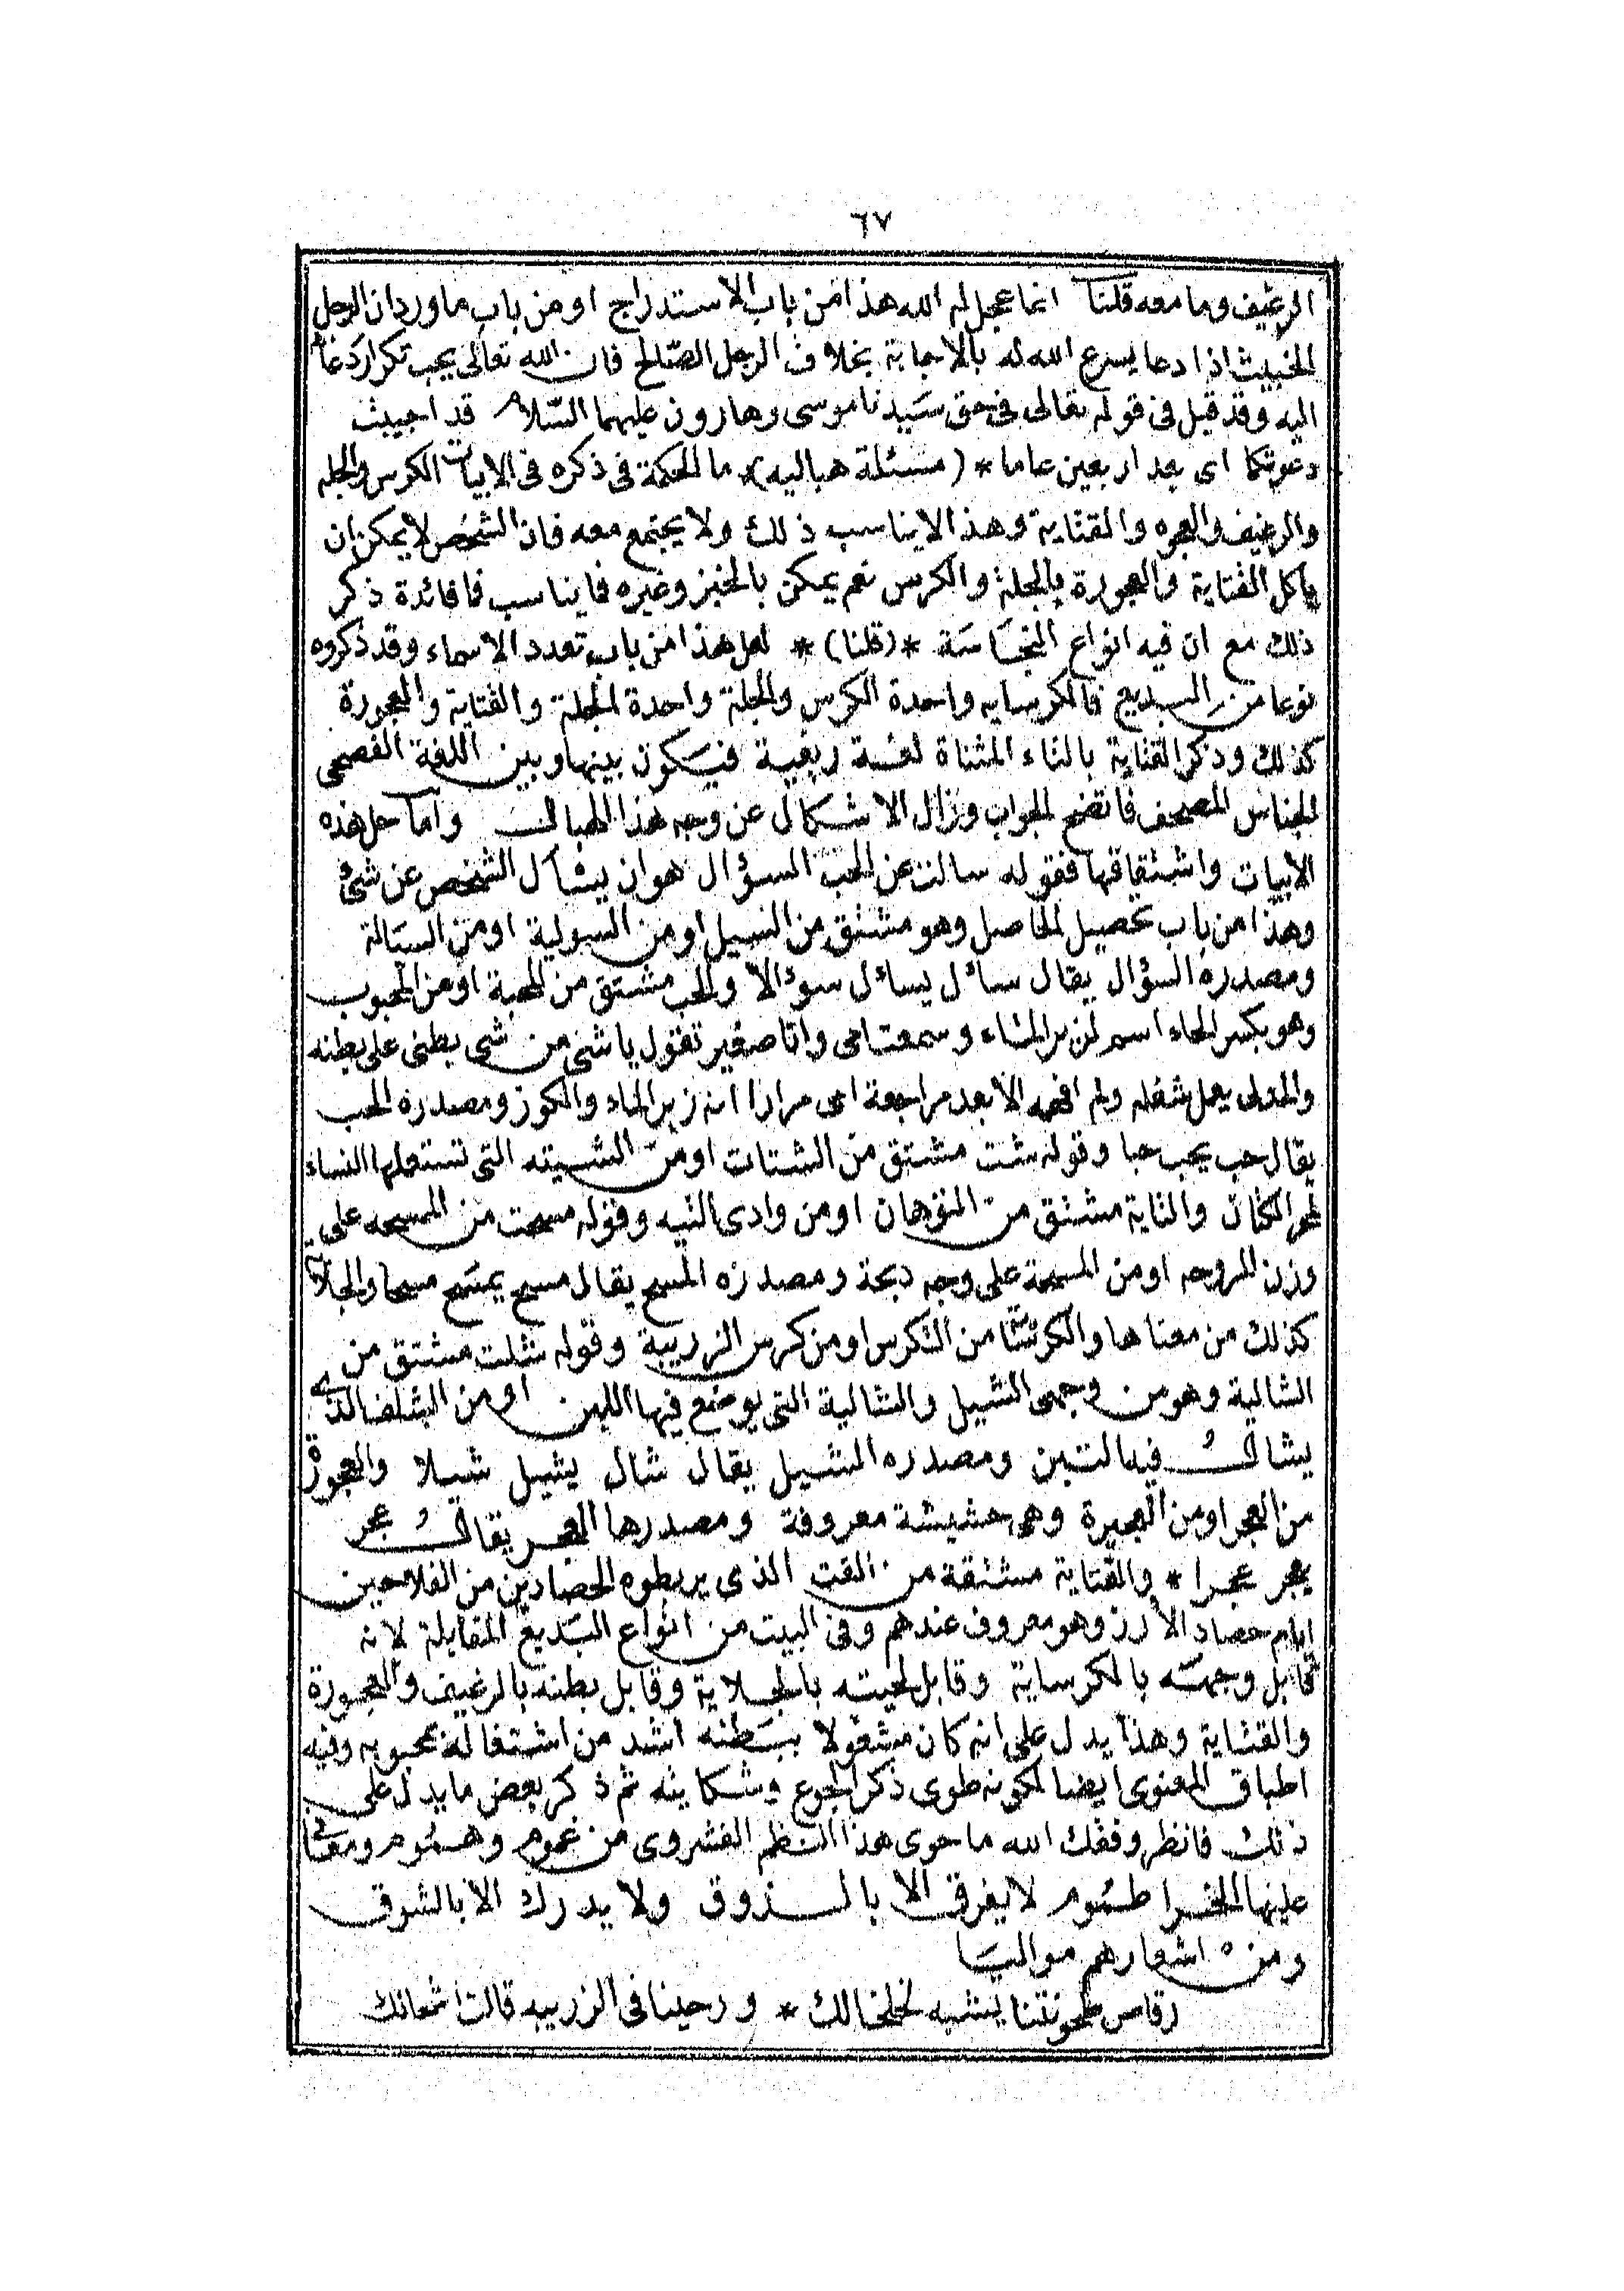 ٦٧
الرغيف وما معه قلنا انما عجل له الله هذا من باب الاستدراج او من باب ما ورد ان الرجل
الخبيث اذا دعا يسرع الله له بالاجابة بخلاف الرجل الصّالح فان الله تعالى يحب تكرار دعائه
اليه وقد قيل فى قوله تعالى فى حق سَيدنا موسى وهارون عليهما السّلام قد اجيبت
دعوتكما اى بعد اربعين عاما * (مسئلة هباليه) * ما الحكمة فى ذكره فى الابيات الكرس والجله
والرغيف والعجوره والقتاية وهذا لايناسب ذلك ولا يجتمع معه فان الشخص لا يمكن ان
ياكل القتاية والعجورة بالجلة والكرس نعم يمكن بالخبز وغيره فايناسب فافائدة ذكر
ذلك مع ان فيه انواع النجَاسَة * (قلنا) * لعل هذا من باب تعدد الاسماء وقد ذكروه
نوعا من البديع فالكرسايه واحدة الكرس والجلة واحدة الجلة والقتاية والعجورة
كذلك وذكر القتاية بالتاء المثناة لغة ريفية فيَكون بينها وبين اللغة الفصحى
الجناس المصحف فاتضح الجواب وزال الاشكال عن وجه هذا الهبال وامّا حل هذه
الابيات واشتقاقها فقوله سالت عن الحب السؤال هو ان يسْأل الشخص عن شئ
وهذا من باب تحصيل الحاصل وهو مشتق من السيل او من السولية او من السيَالة
ومصدره السؤال يقال سأل يسأل سوءالا والحب مشتق من المحبة او من المحبوب
وهو بكسر الحاء اسم لمن بر الماء وسمعت امى وانا صغير تقول ياشى من شى بطنى على بطنه
والمدلى يعمل شغله ولم افهمه الا بعد مراجعة امى مرارا انه زير الماء والكوز ومصدره الحب
يقال حب يحب حبا وقوله شت مشتق من الشتات او من الشيته التى تستعملها النساء
لحمر الكتان والتاية مشتق من التوهان او من وادى التيه وقوله مسحت من المسحه على
وزن المروحه او من المسحة على وجه دبحة ومصدره المسح يقال مسح يمسَح مسحا والجلاّيه
كذلك من معناها والكرسَّايا من التكرس او من كرس الزريبة وقوله شلت مشتق من
الشالية وهو من وجهى الشيل والشالية التى يوضع فيها اللبن او من الشلف الذى
يشال فيه التبن ومصدره الشيل يقال شال يشيل شيلا والعجورة
من العجر او من العجيرة وهى حشيشة معروفة ومصدرها العجر يقال عجر
يعجر عجرا * والقتاية مشتقة من القت الذى يربطوه الحصادين من الفلاحين
ايام حصاد الارز وهو معروف عندهم وفى البيت من انواع البَديع المقابلة لانه
قابل وجهَه بالكرساية وقابل لحيته بالجلاية وقابل بطنه بالرغيف والعجورة
والقتاية وهذا يدل على انه كان مشغولا ببَطنه اشد من اشتغاله بمحبوبه وفيه
اطباق المعنوى ايضا لكونه طوى ذكر الجوع وشكايته ثم ذكر بعض ما يدل على
ذلك فانظر وفقك الله ما حوى هذا النظم الفشروى من غموم وهمُوم ومعانى
عليها الخرا طمُوم لا يفرق الا بالذوق ولا يدرك الا بالشوق
ومن اشعارهم مواليَا
رقاص طحونتنا يشبه لخلخالك * ورحينا فى الزريبه قالت اشحالك